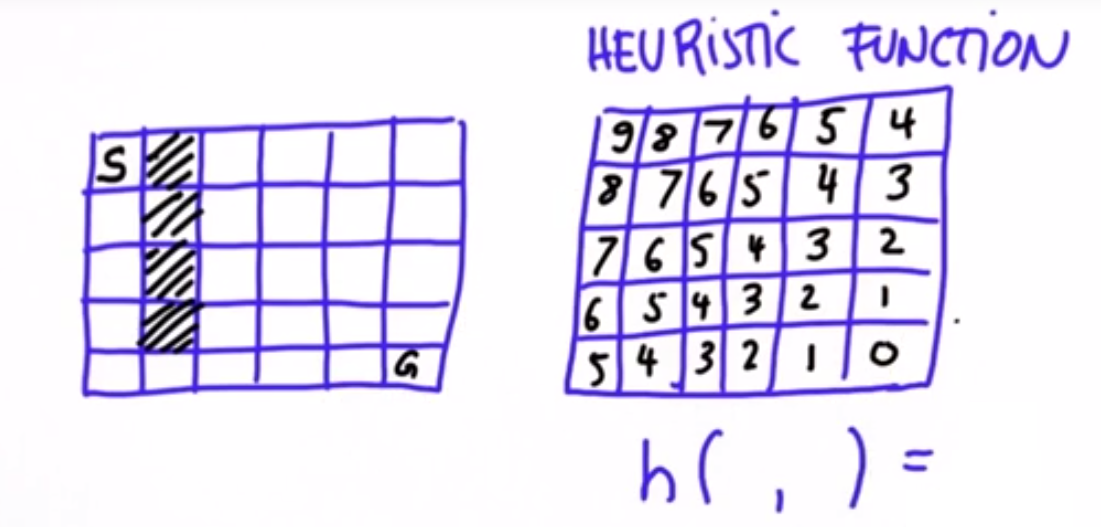 HEURISTIC FUNCTION
S
G
9 8 7 6 5 4
8 7 6 5 4 3
7 6 5 4 3 2
6 5 4 3 2 1
5 4 3 2 1 0
h( , ) =